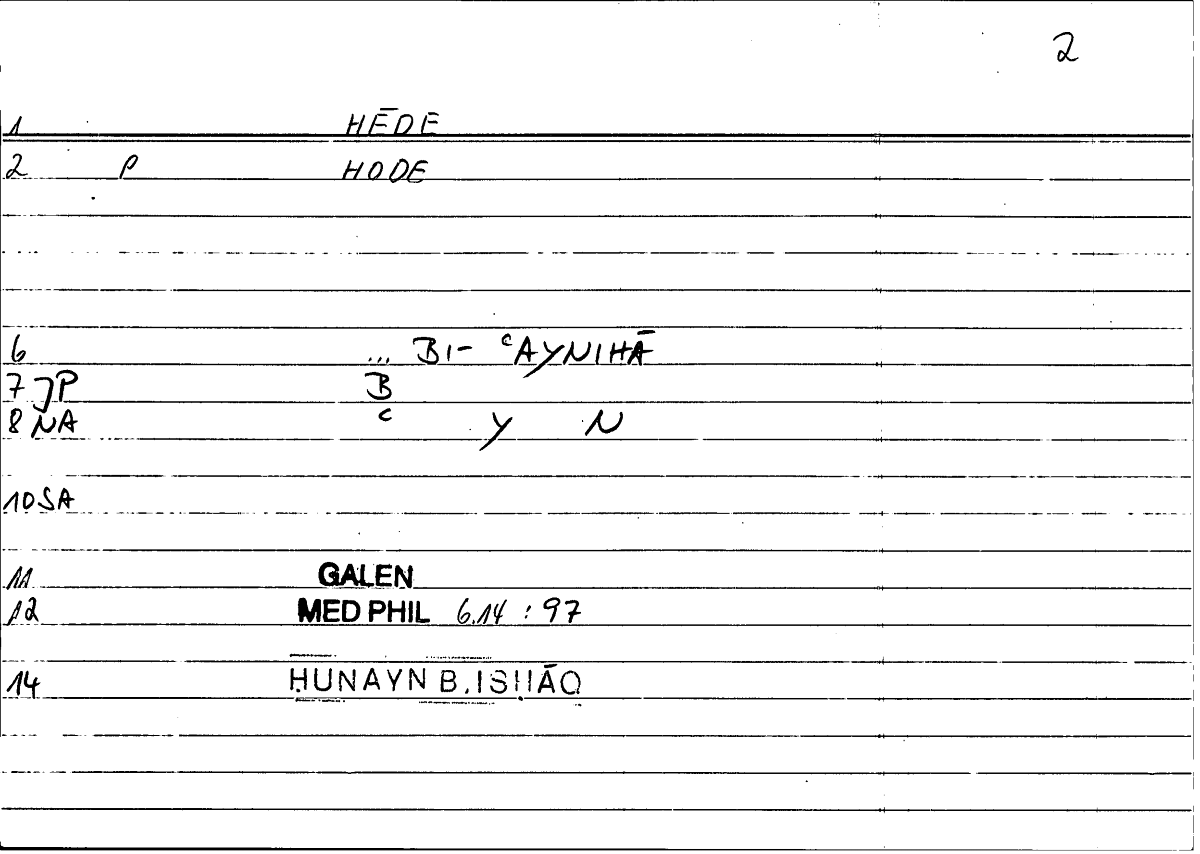 2
1 HĒDE
2 P HODE
6 ... BI- ʿAYNIHĀ
7 JP B
8 NA ʿ Y N
10 SA
11 GALEN
12 MED PHIL 6.14 : 97
14 ḤUNAYN B. ISḤĀQ